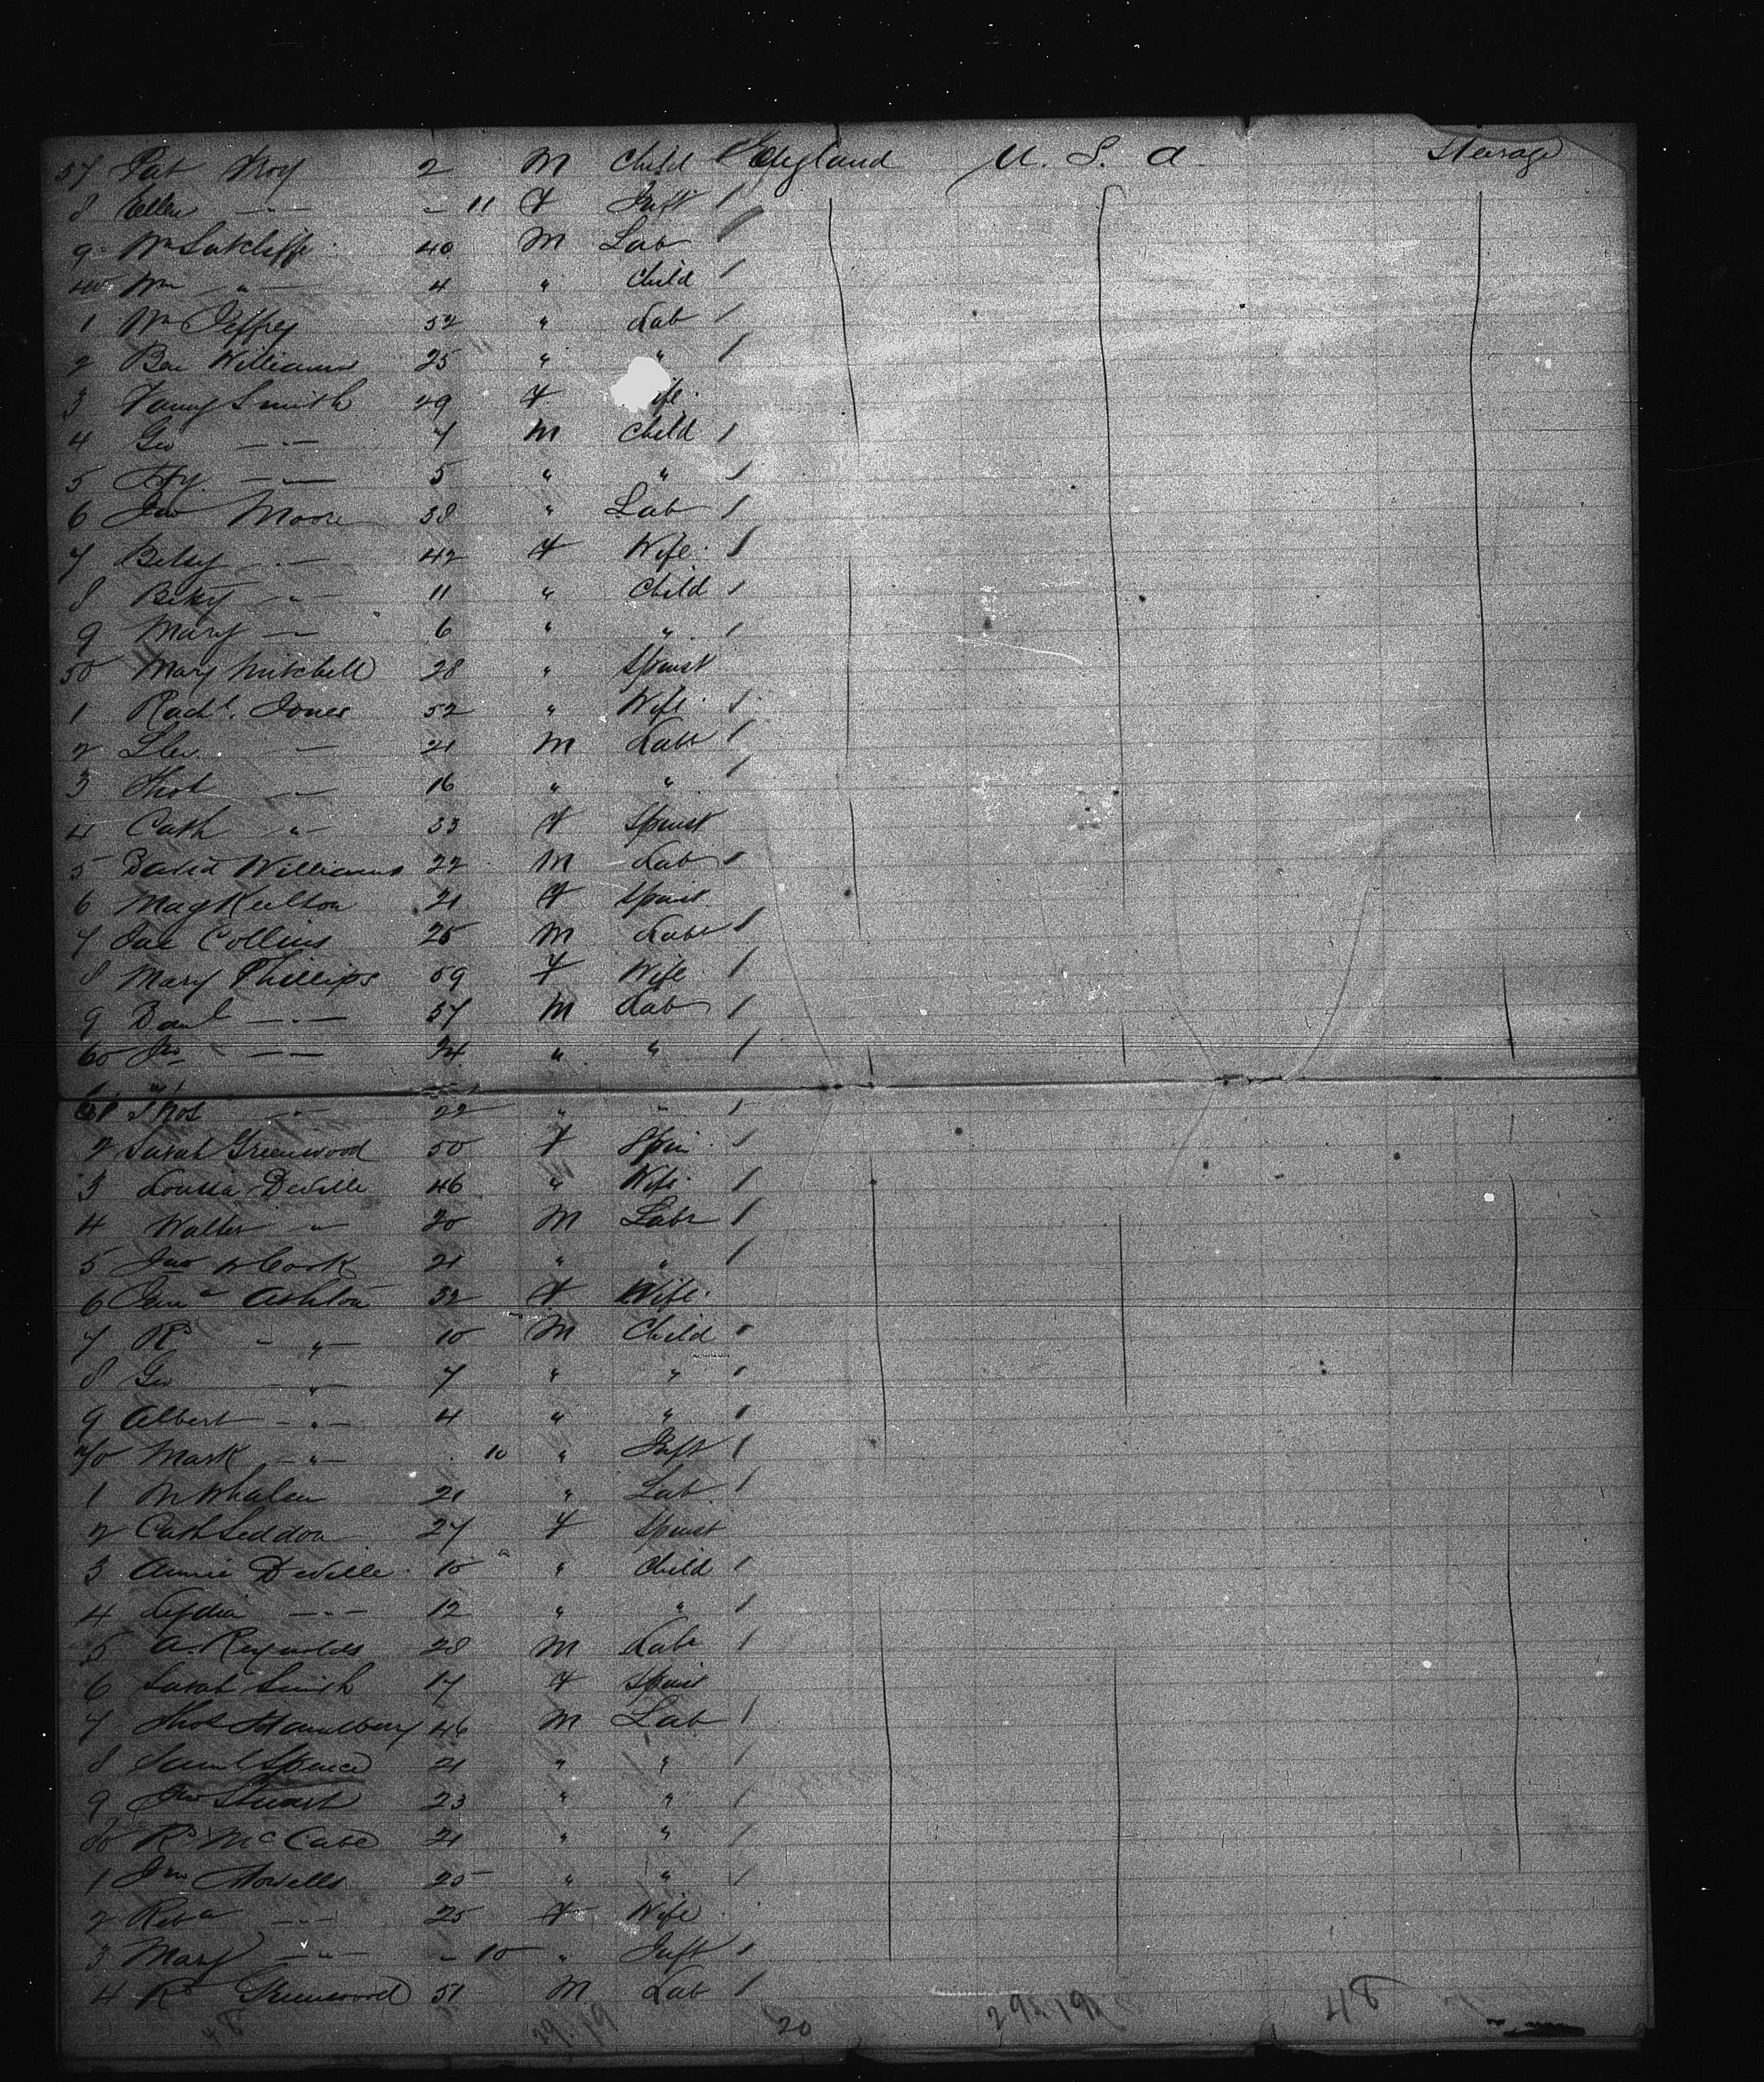 37 Pat Troy 2 M Child England U. S. A Steerage
8 Ellen -"- - 11 F Inft
9 Wm Sutcliffe 40 M Lab
40 Wm " 4 " Child
1 Wm Jeffrey 52 " Lab
2 Ben Williams 25 " "
3 Fanny Smith 29 F ife
4 Geo -"- 7 M Child
5 Hy. -"- 5 " "
6 Jno Moore 38 " Lab
7 Betsy -"- 42 F Wife
8 Betsy -"- 11 " Child
9 Mary -"- 6 " "
50 Mary Mitchell 28 " Spinst
1 Rachl. Jones 52 " Wife
2 Llew. -"- 21 M Labr
3 Thos -"- 16 " "
4 Cath -"- 33 F Spinst
5 David Williams 22 M Lab
6 Mag 21 F Spinst
7 Jas Collins 25 M Labr
8 Mary Phillips 59 F Wife
9 Danl -"- 57 M Lab
60 Jno -"- 24 " "
61 Thos -"- 22 " "
2 Sarah Greenwood 50 F Spin
3 Louisa Deville 46 " Wife
4 Walter -"- 20 M Labr
5 Jno Cook 21 " "
6 Ashton 32 F Wife
7 Rd -"- 10 M Child
8 Geo -"- 7 " "
9 Albert -"- 4 " "
70 Mark -"- 10 " Inft
1 M Whalen 21 " Lab
2 Cath Seddon 27 F Spinst
3 Annie Deville 10 " Child
4 Lydia -"- 12 " "
5 A. Reynolds 28 M Labr
6 Sarah Smith 17 F Spinst
7 Thos 46 M Lab
8 Saml Spence 21 " "
9 Jno Stuart 23 " "
80 Rd McCabe 21 " "
1 Jno Howells 25 " "
2 Reba -"- 25 F Wife
3 Mary -"- - 10 " Inft
4 Rd Greenwood 51 M Lab
48 29.19 20 48